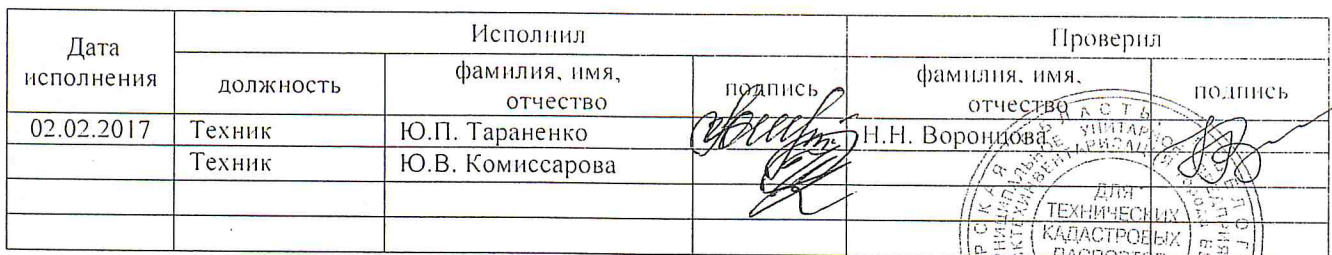 Дата исполнения
Исполнил
Проверил
должность
фамилия, имя, отчество
подпись
фамилия, имя, отчество
подпись
02.02.2017 Техник Ю.П. Тараненко Н.Н. Воронцова
Техник Ю.В. Комиссарова
ДЛЯ
ТЕХНИЧЕСКИХ
КАДАСТРОВЫХ
ПАСПОРТОВ